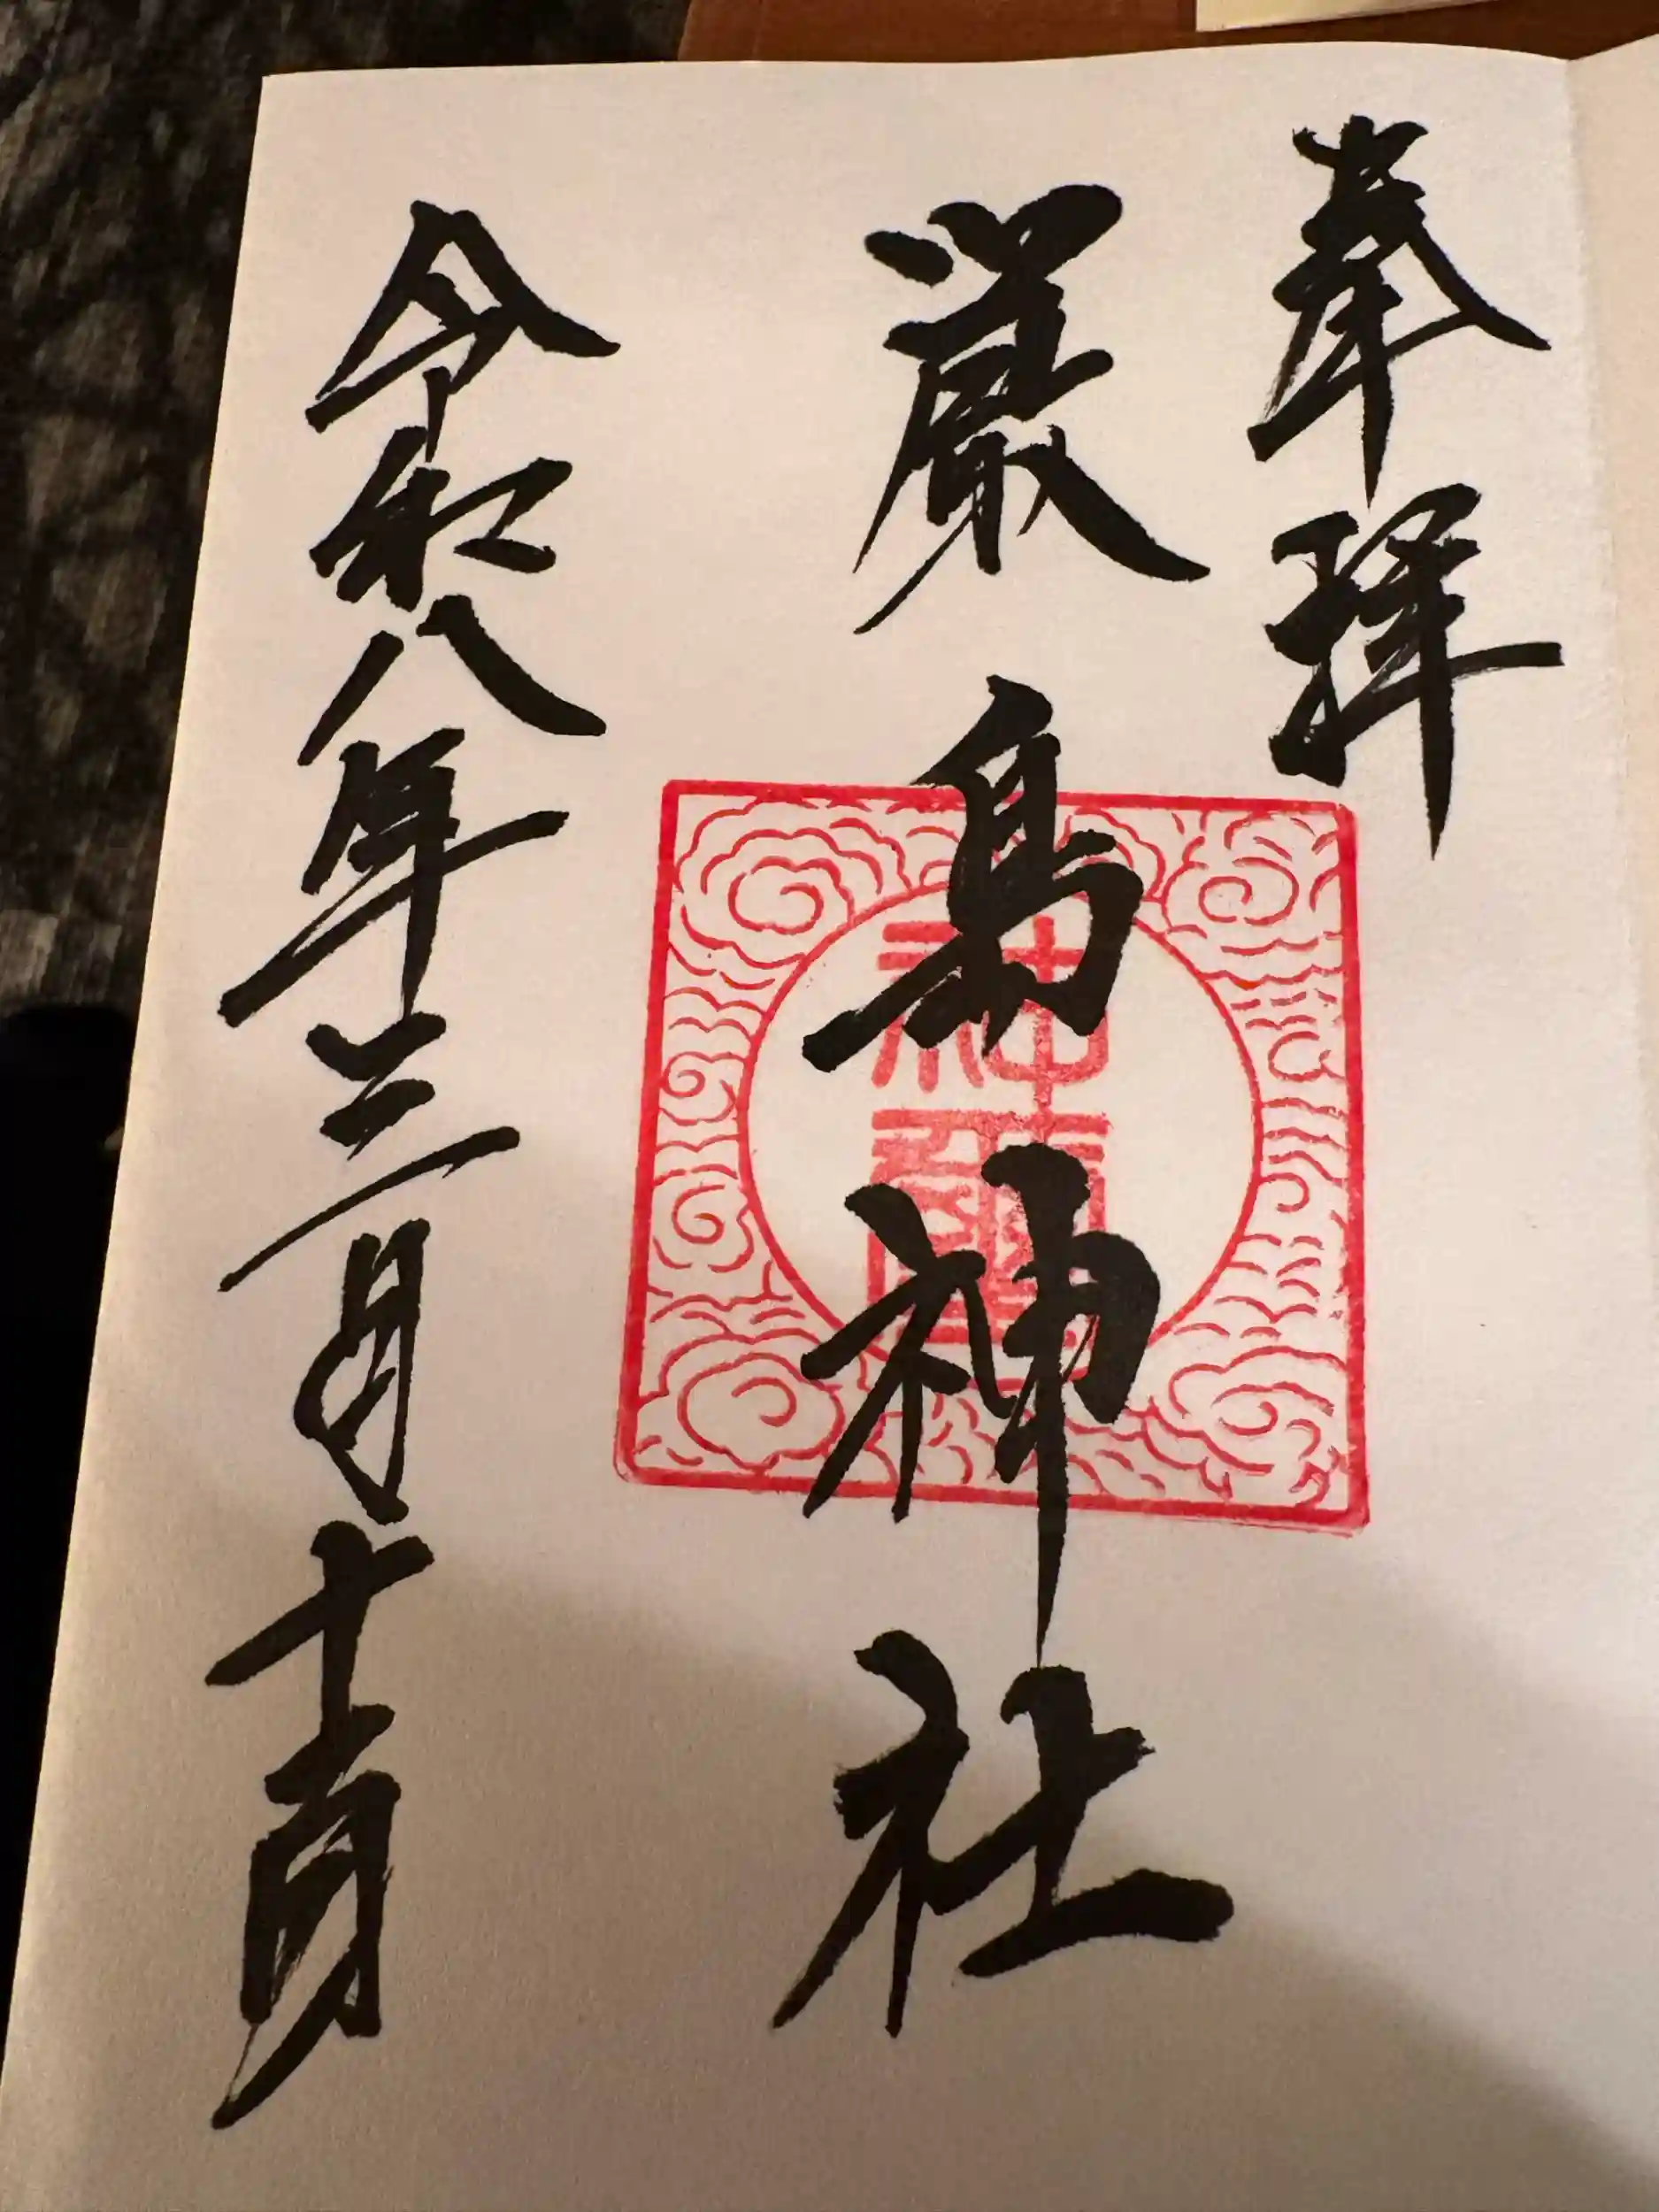 奉拝
厳島神社
令和八年三月十一日
神